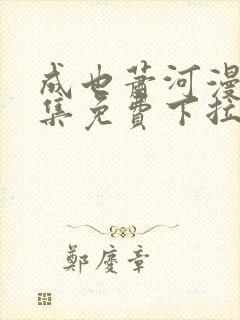 成也萧河漫
集免费下拉
鄭慶章